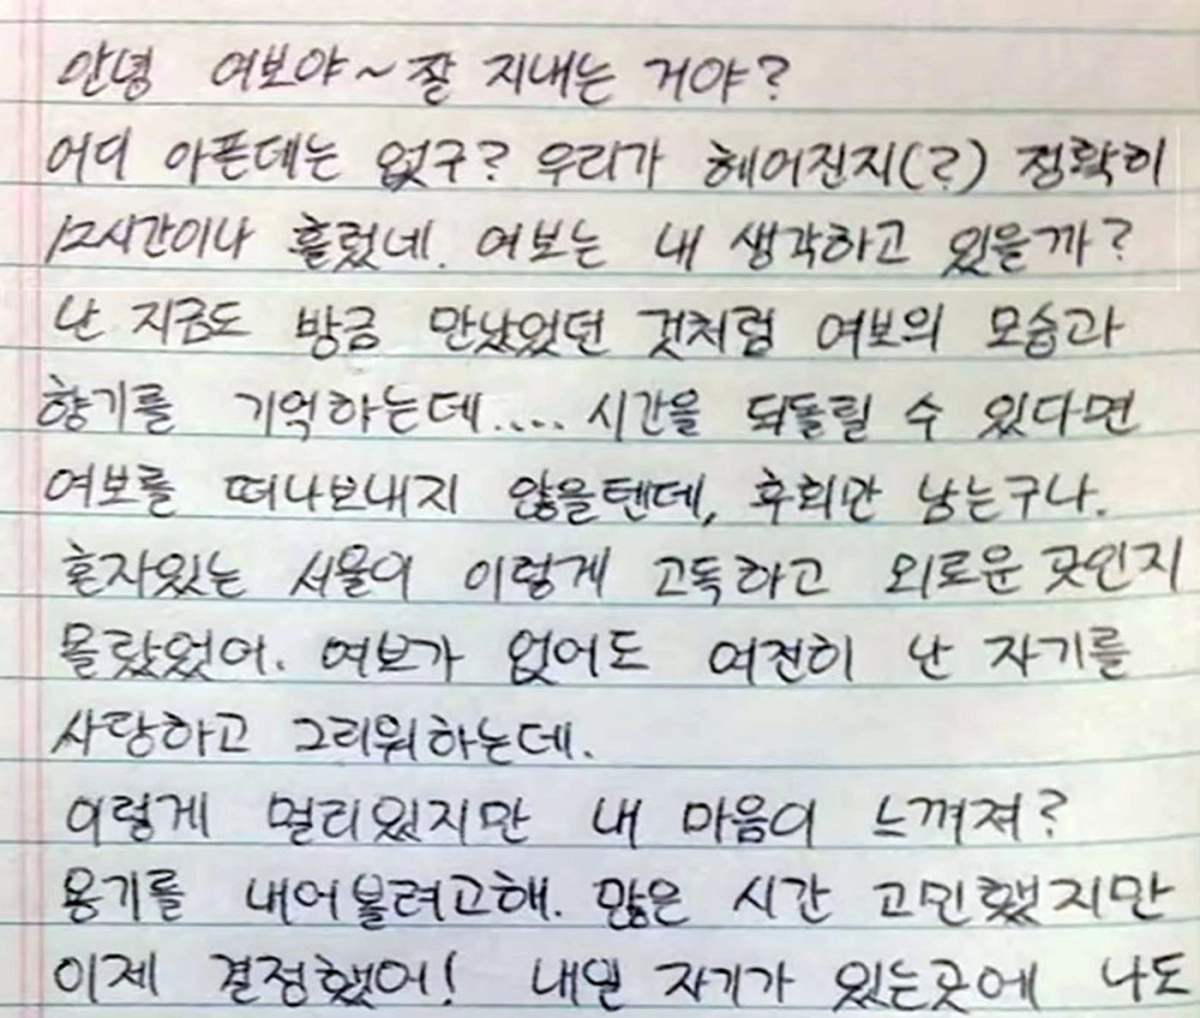 안녕 여보야~ 잘 지내는 거야?
어디 아픈데는 없구? 우리가 헤어진지(?) 정확히
12시간이나 흘렀네. 여보는 내 생각하고 있을까?
난 지금도 방금 만났었던 것처럼 여보의 모습과
향기를 기억하는데.... 시간을 되돌릴 수 있다면
여보를 떠나보내지 않을텐데, 후회만 남는구나.
혼자있는 서울이 이렇게 고독하고 외로운 곳인지
몰랐었어. 여보가 없어도 여전히 난 자기를
사랑하고 그리워하는데.
이렇게 멀리있지만 내 마음이 느껴져?
용기를 내어볼려고해. 많은 시간 고민했지만
이제 결정했어! 내일 자기가 있는곳에 나도